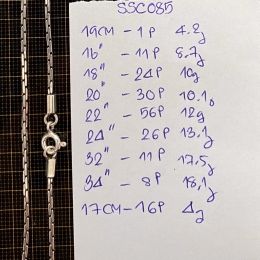 SSC085
19CM - 1P 4.2g
16" - 11P 8.7g
18" - 24P 10g
20" - 30P 10.1g
22" - 56P 12g
24" - 26P 13.1g
32" - 11P 17.5g
34" - 8P 18.1g
17CM - 16P 4g